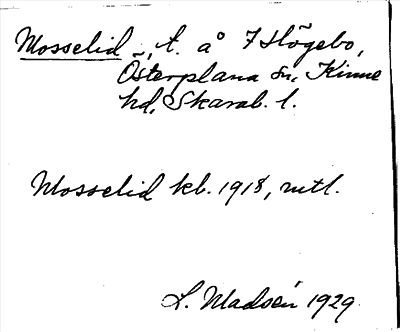 Mosselid, t. å 7 Högebo,
Österplana sn, Kinne
hd, Skarab. l.
Mosselid kb. 1918, mtl.
L. Madsén 1929